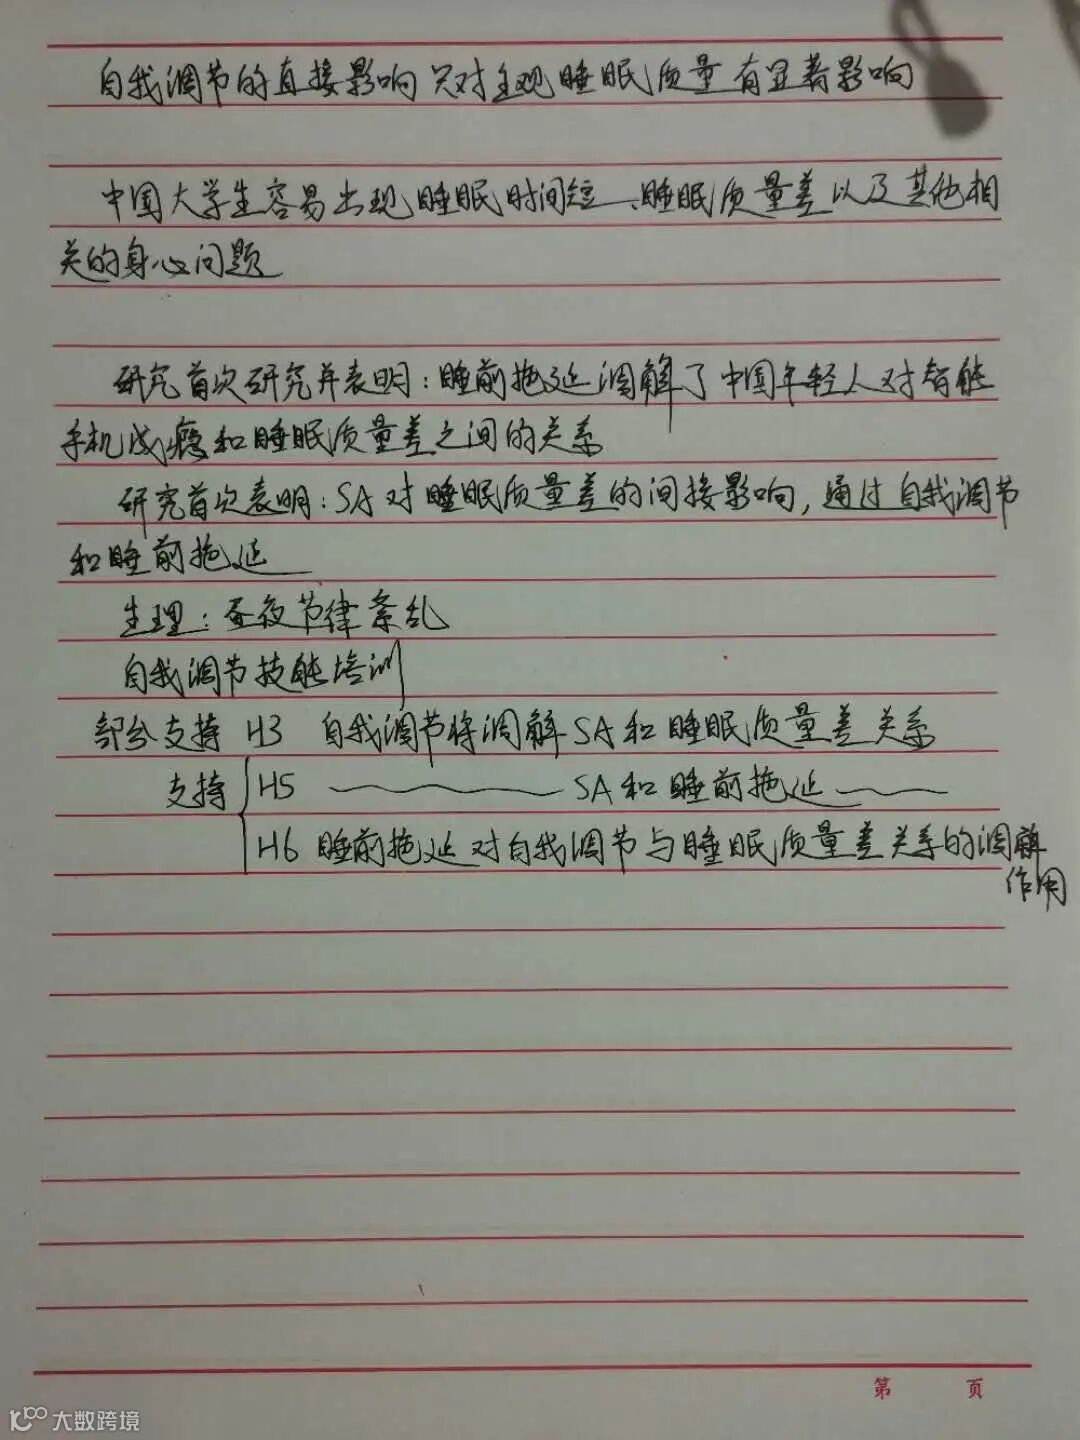 自我调节的直接影响只对主观睡眠质量有显著影响
中国大学生容易出现睡眠时间短、睡眠质量差以及其他相
关的身心问题
研究首次研究并表明：睡前拖延调解了中国年轻人对智能
手机成瘾和睡眠质量差之间的关系
研究首次表明：SA对睡眠质量差的间接影响，通过自我调节
和睡前拖延
生理：昼夜节律紊乱
自我调节技能培训
部分支持 H3 自我调节将调解SA和睡眠质量差关系
支持 H5 ～～～ SA和睡前拖延 ～～
H6 睡前拖延对自我调节与睡眠质量差关系的调解
作用
第 页
大数跨境